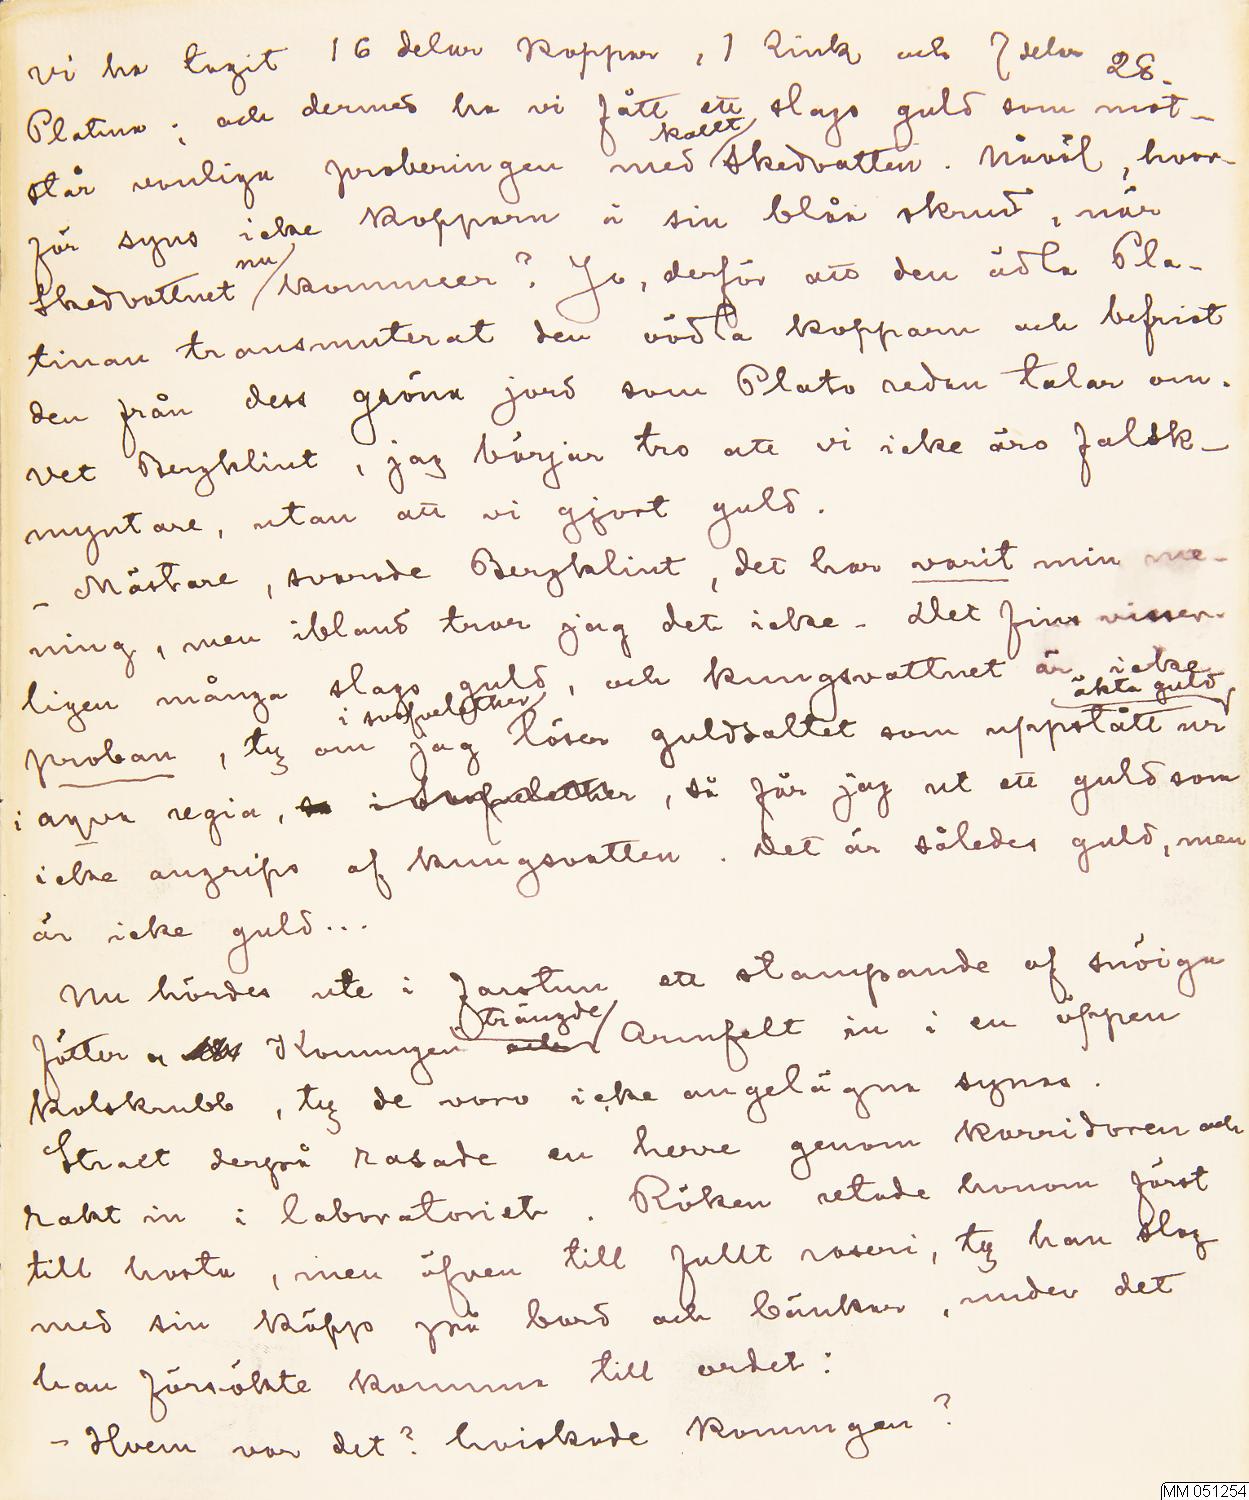 28.
vi ha tagit 16 delar koppar, 1 Zink och 7 delar
Platina; och dermed ha vi fått ett slags guld som mot-
står vanliga proberingen med kallt Skedvatten. Nåväl, hvar-
för syns icke Kopparn i sin blåa skrud, när
Skedvattnet nu kommeer? Jo, derför att den ädla Pla-
tinan transmuterat den oädla kopparn och befriat
den från dess gröna jord som Plato redan talar om.
Vet Bergklint, jag börjar tro att vi icke äro falsk-
myntare, utan att vi gjort guld.
- Mästare, svarade Bergklint, det har varit min me-
ning, men ibland tror jag det icke. Det fins visser-
ligen många slags guld, och kungsvattnet är icke
proban, ty om jag i svafvelether löser guldsaltet som uppstått ur äkta guld
i aqva regia, så i Svafvelether, så får jag ut ett guld som
icke angrips af kungsvatten. Det är således guld, men
är icke guld...
Nu hördes ute i farstun ett stampande af snöiga
fötter Konungen trängde och Armfelt in i en öppen
kolskrubb, ty de voro icke angelägna synas.
Strax derpå rasade en herre genom korridoren och
rakt in i laboratoriet. Röken retade honom först
till hosta, men äfven till fullt raseri, ty han slog
med sin käpp på bord och bänkar, under det
han försökte komma till ordet:
- Hvem var det? hviskade Konungen?
MM 051254